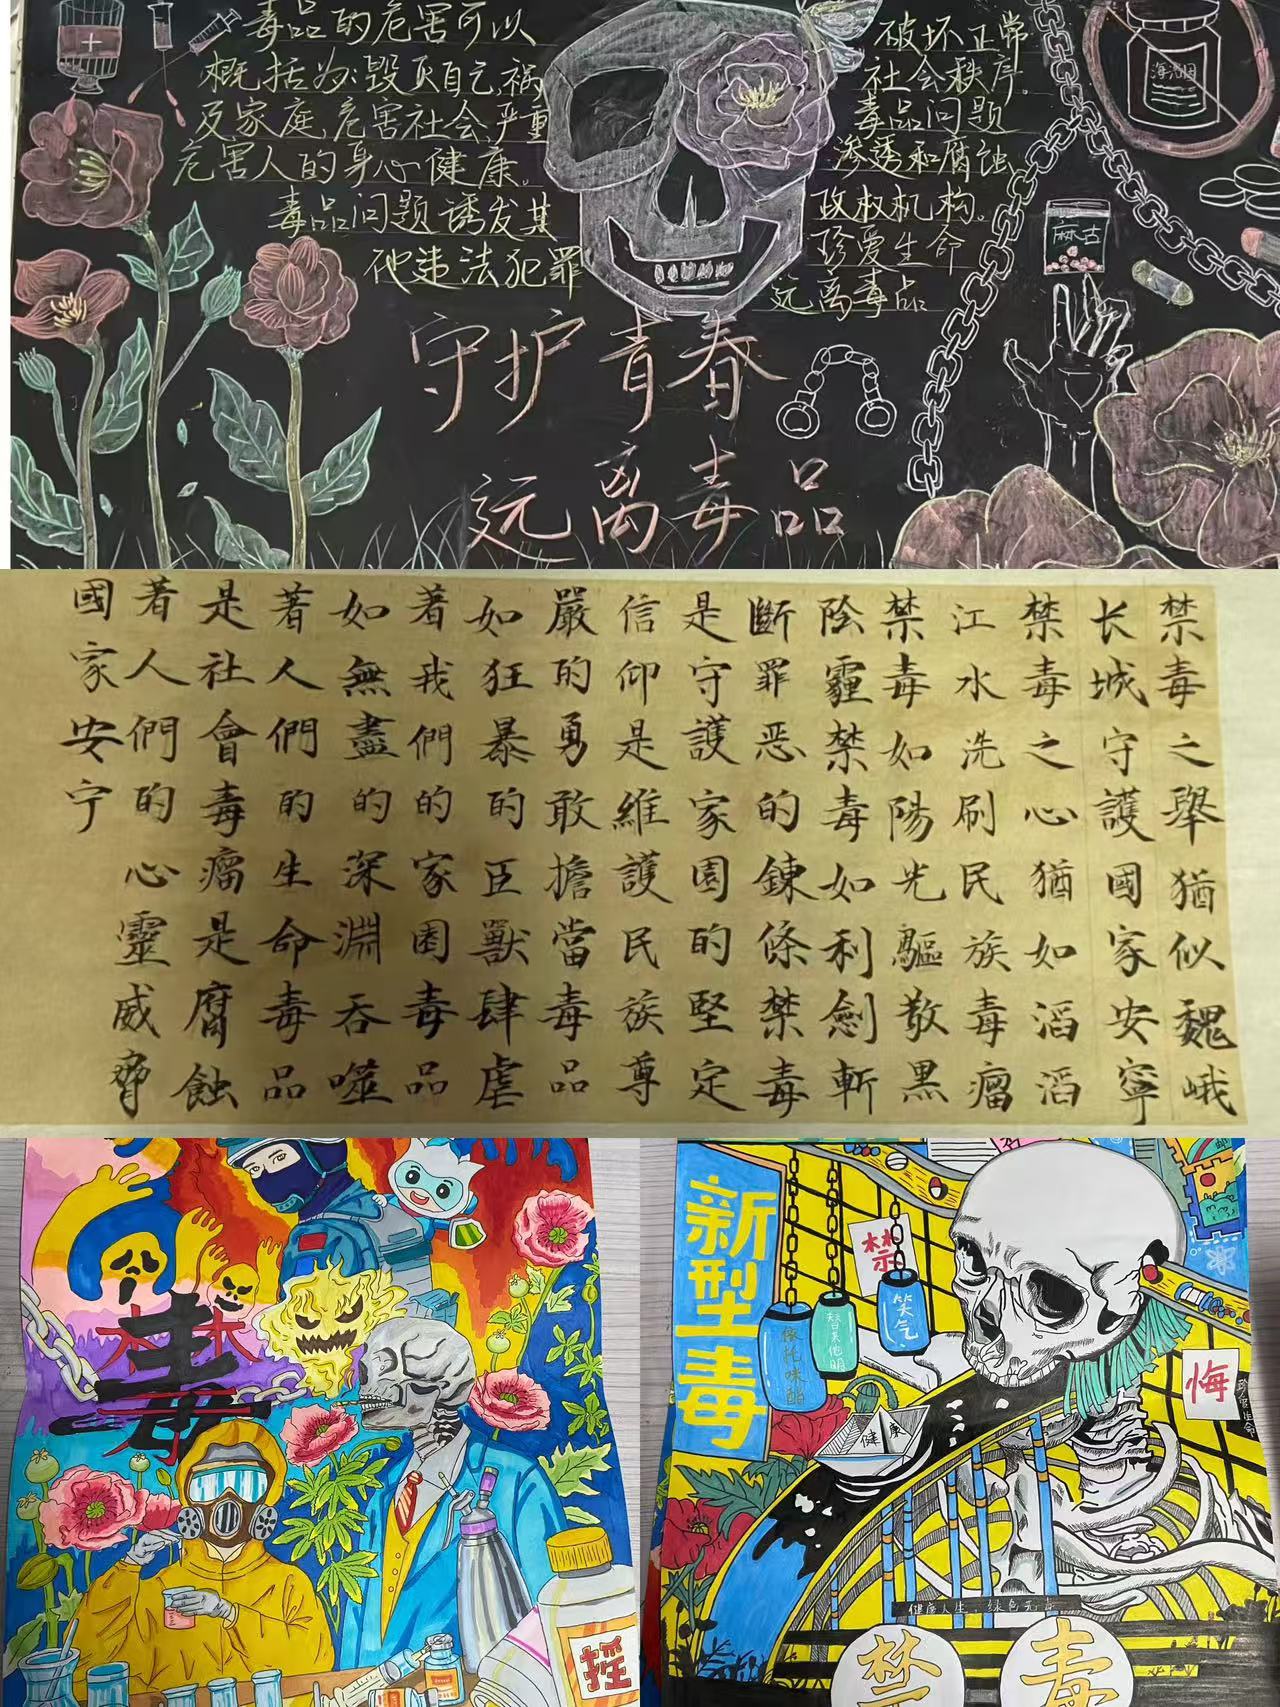 毒品的危害可以
概括为:毁灭自己,祸
及家庭,危害社会,严重
危害人的身心健康。
毒品问题诱发其
他违法犯罪
破坏正常
社会秩序。
毒品问题
渗透和腐蚀
政权机构。
珍爱生命
远离毒品
海洛因
麻古
守护青春
远离毒品
禁毒之舉猶似魏峨
长城守護國家安寧
禁毒之心猶如滔滔
江水洗刷民族毒瘤
禁毒如陽光驅散黑
陰霾禁毒如利劍斬
斷罪恶的鍊條禁毒
是守護家園的堅定
信仰是維護民族尊
嚴的勇敢擔當毒品
如狂暴的臣獸肆虐
著我們的家園毒品
如無盡的深淵吞噬
著人們的生命毒品
是社會毒瘤是腐蝕
著人們的心靈威脅
國家安宁
禁毒
摇
新型毒
禁
依托咪酯
替来他明
笑气
健康
悔
珍爱生命
健康人生,绿色无毒
禁毒